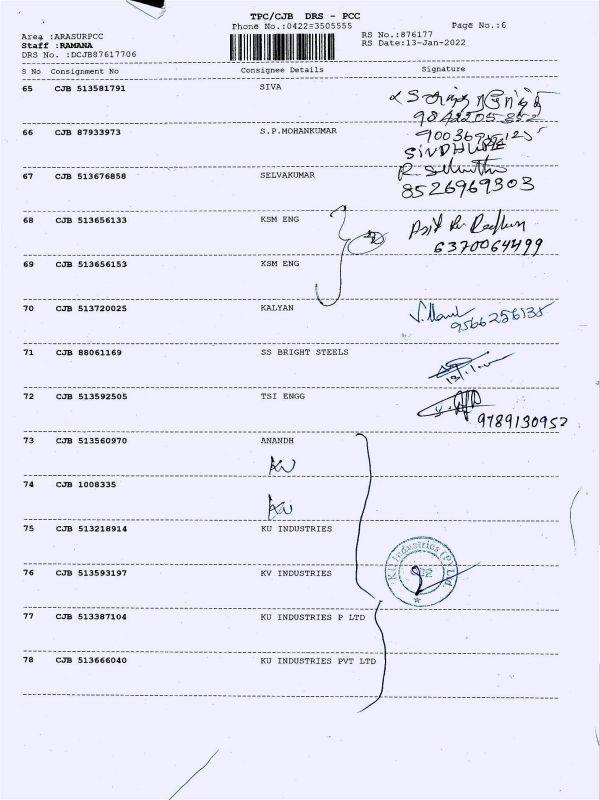 TPC/CJB DRS - PCC
Phone No.:0422=3505555 Page No.:6
Area :ARASURPCC RS No.:876177
Staff :RAMANA RS Date:13-Jan-2022
DRS No. :DCJB87617706
S No Consignment No Consignee Details Signature
65 CJB 513581791 SIVA
9842205352
66 CJB 87933973 S.P.MOHANKUMAR
67 CJB 513676858 SELVAKUMAR
8526969303
68 CJB 513656133 KSM ENG
6370064499
69 CJB 513656153 KSM ENG
70 CJB 513720025 KALYAN
9566256135
71 CJB 88061169 SS BRIGHT STEELS
72 CJB 513592505 TSI ENGG
9789130952
73 CJB 513560970 ANANDH
KU
74 CJB 1008335
KU
75 CJB 513218914 KU INDUSTRIES
76 CJB 513593197 KV INDUSTRIES
77 CJB 513387104 KU INDUSTRIES P LTD
78 CJB 513666040 KU INDUSTRIES PVT LTD